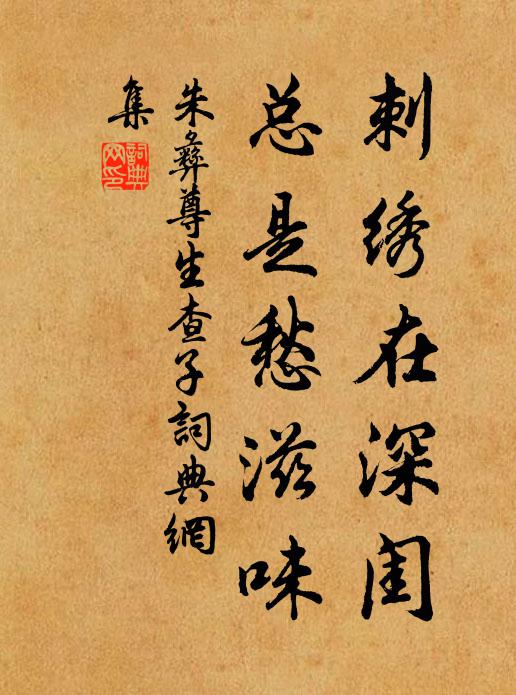 刺绣在深闺
总是愁滋味
朱彝尊生查子詞典網
集
詞典
网印